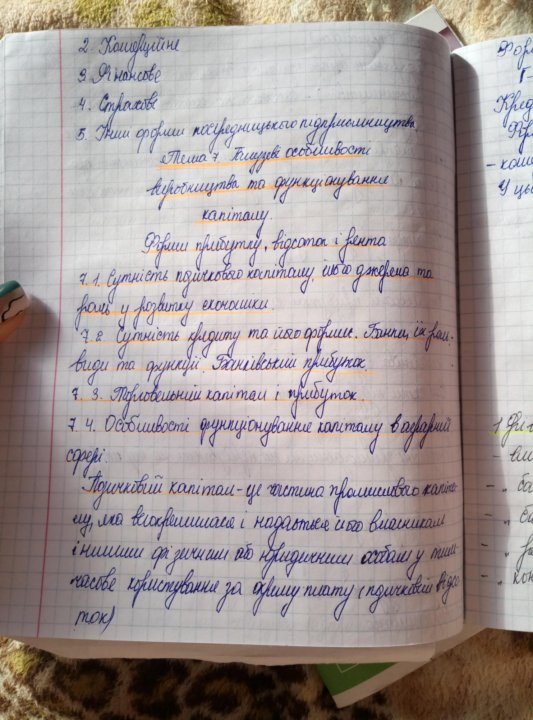 2. Комерційне
3. Фінансове
4. Страхове
5. Інші форми посередницького підприємництва.
"Тема 7. Галузеві особливості
виробництва та функціонування
капіталу.
Форми прибутку, відсоток і рента
7.1. Сутність позичкового капіталу, його джерела та
роль у розвитку економіки.
7.2. Сутність кредиту та його форми. Банки, їх роль,
види та функції. Банківський прибуток.
7.3. Торговельний капітал і прибуток.
7.4. Особливості функціонування капіталу в аграрній
сфері.
Позичковий капітал - це частина промислового капіта-
лу, яка відокремилася і надається його власниками
іншим фізичним або юридичним особам у тим-
часове користування за окрему плату (позичковий відсо-
ток)
Форм
Кред
- коме
У цьо